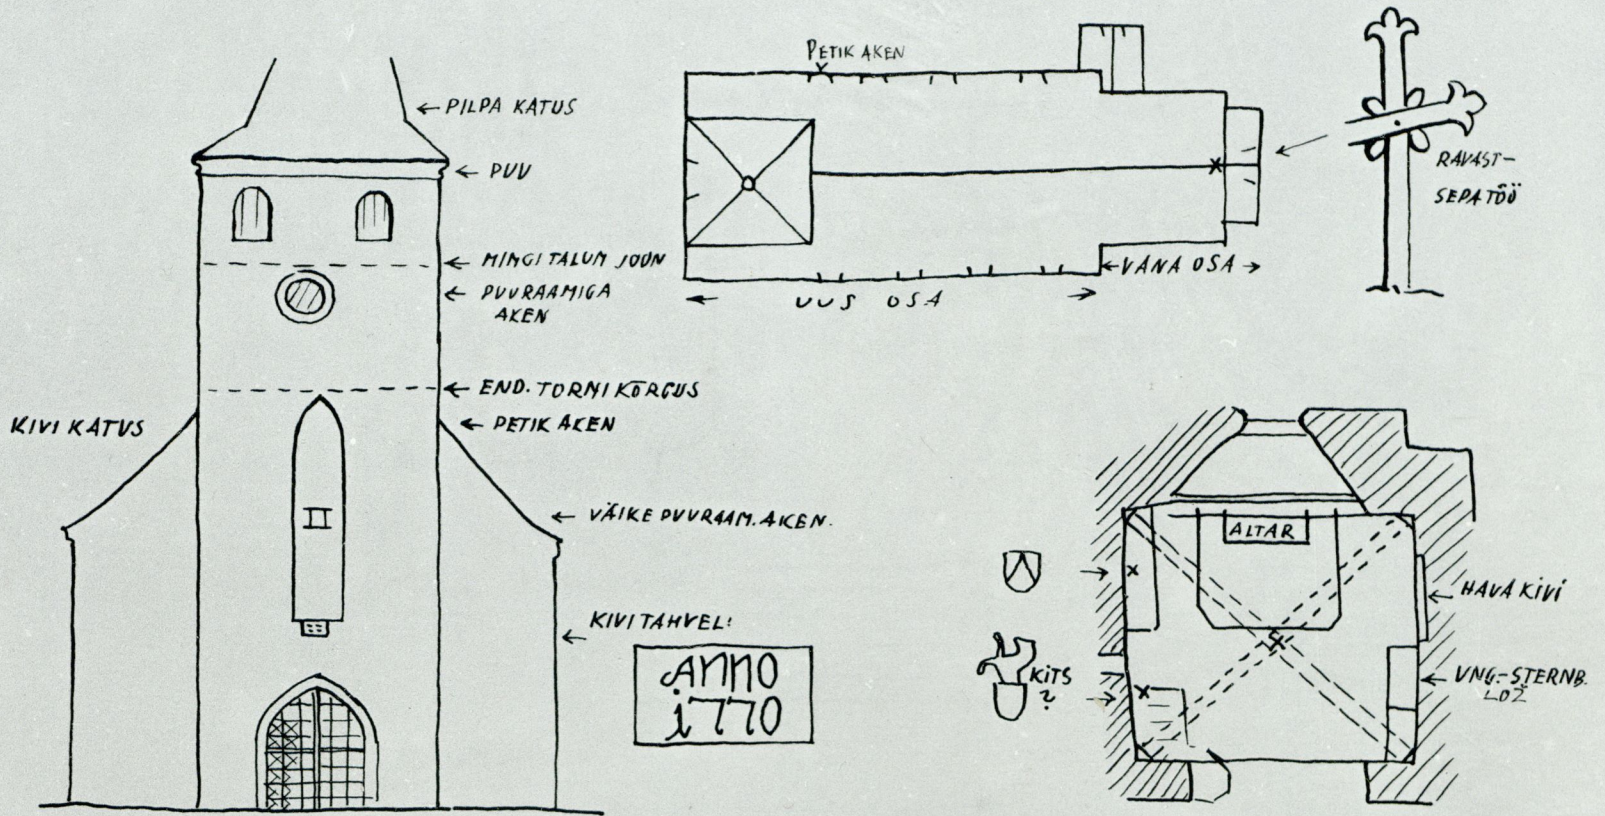 PILPA KATUS
PUU
MINGI TALUM JOON
PUURAAMIGA
AKEN
END. TORNI KÕRGUS
KIVI KATUS
PETIK AKEN
VÄIKE PUURAAM. AKEN.
KIVITAHVEL:
ANNO
1770
PETIK AKEN
VANA OSA
UUS OSA
RAVAST-
SEPATÖÖ
ALTAR
HAVA KIVI
KITS
?
UNG.-STERNB.
LOŽ